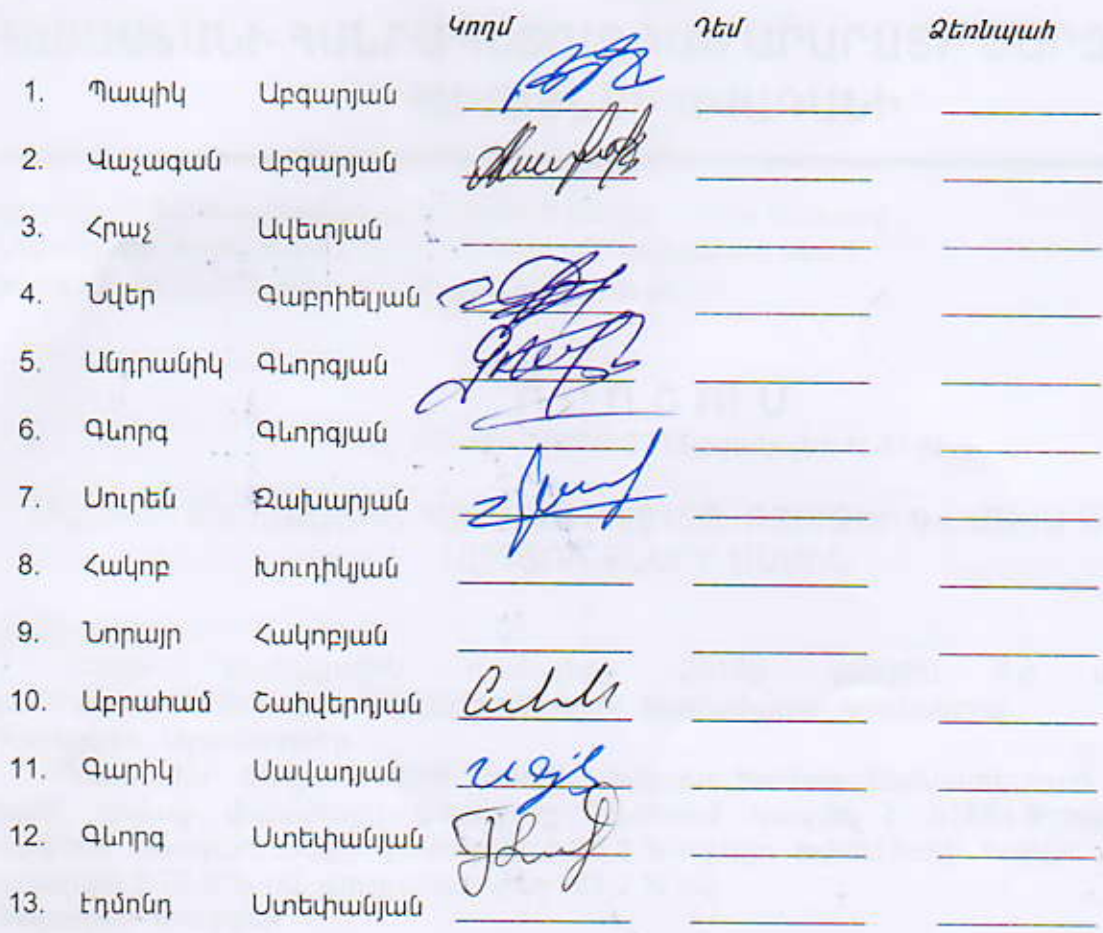 Կողմ Դեմ Ձեռնպահ
1. Պապիկ Աբգարյան
2. Վաչագան Աբգարյան
3. Հրաչ Ավետյան
4. Նվեր Գաբրիելյան
5. Անդրանիկ Գևորգյան
6. Գևորգ Գևորգյան
7. Սուրեն Զախարյան
8. Հակոբ Խուդիկյան
9. Նորայր Հակոբյան
10. Աբրահամ Շահվերդյան
11. Գարիկ Սավադյան
12. Գևորգ Ստեփանյան
13. Էդմոնդ Ստեփանյան